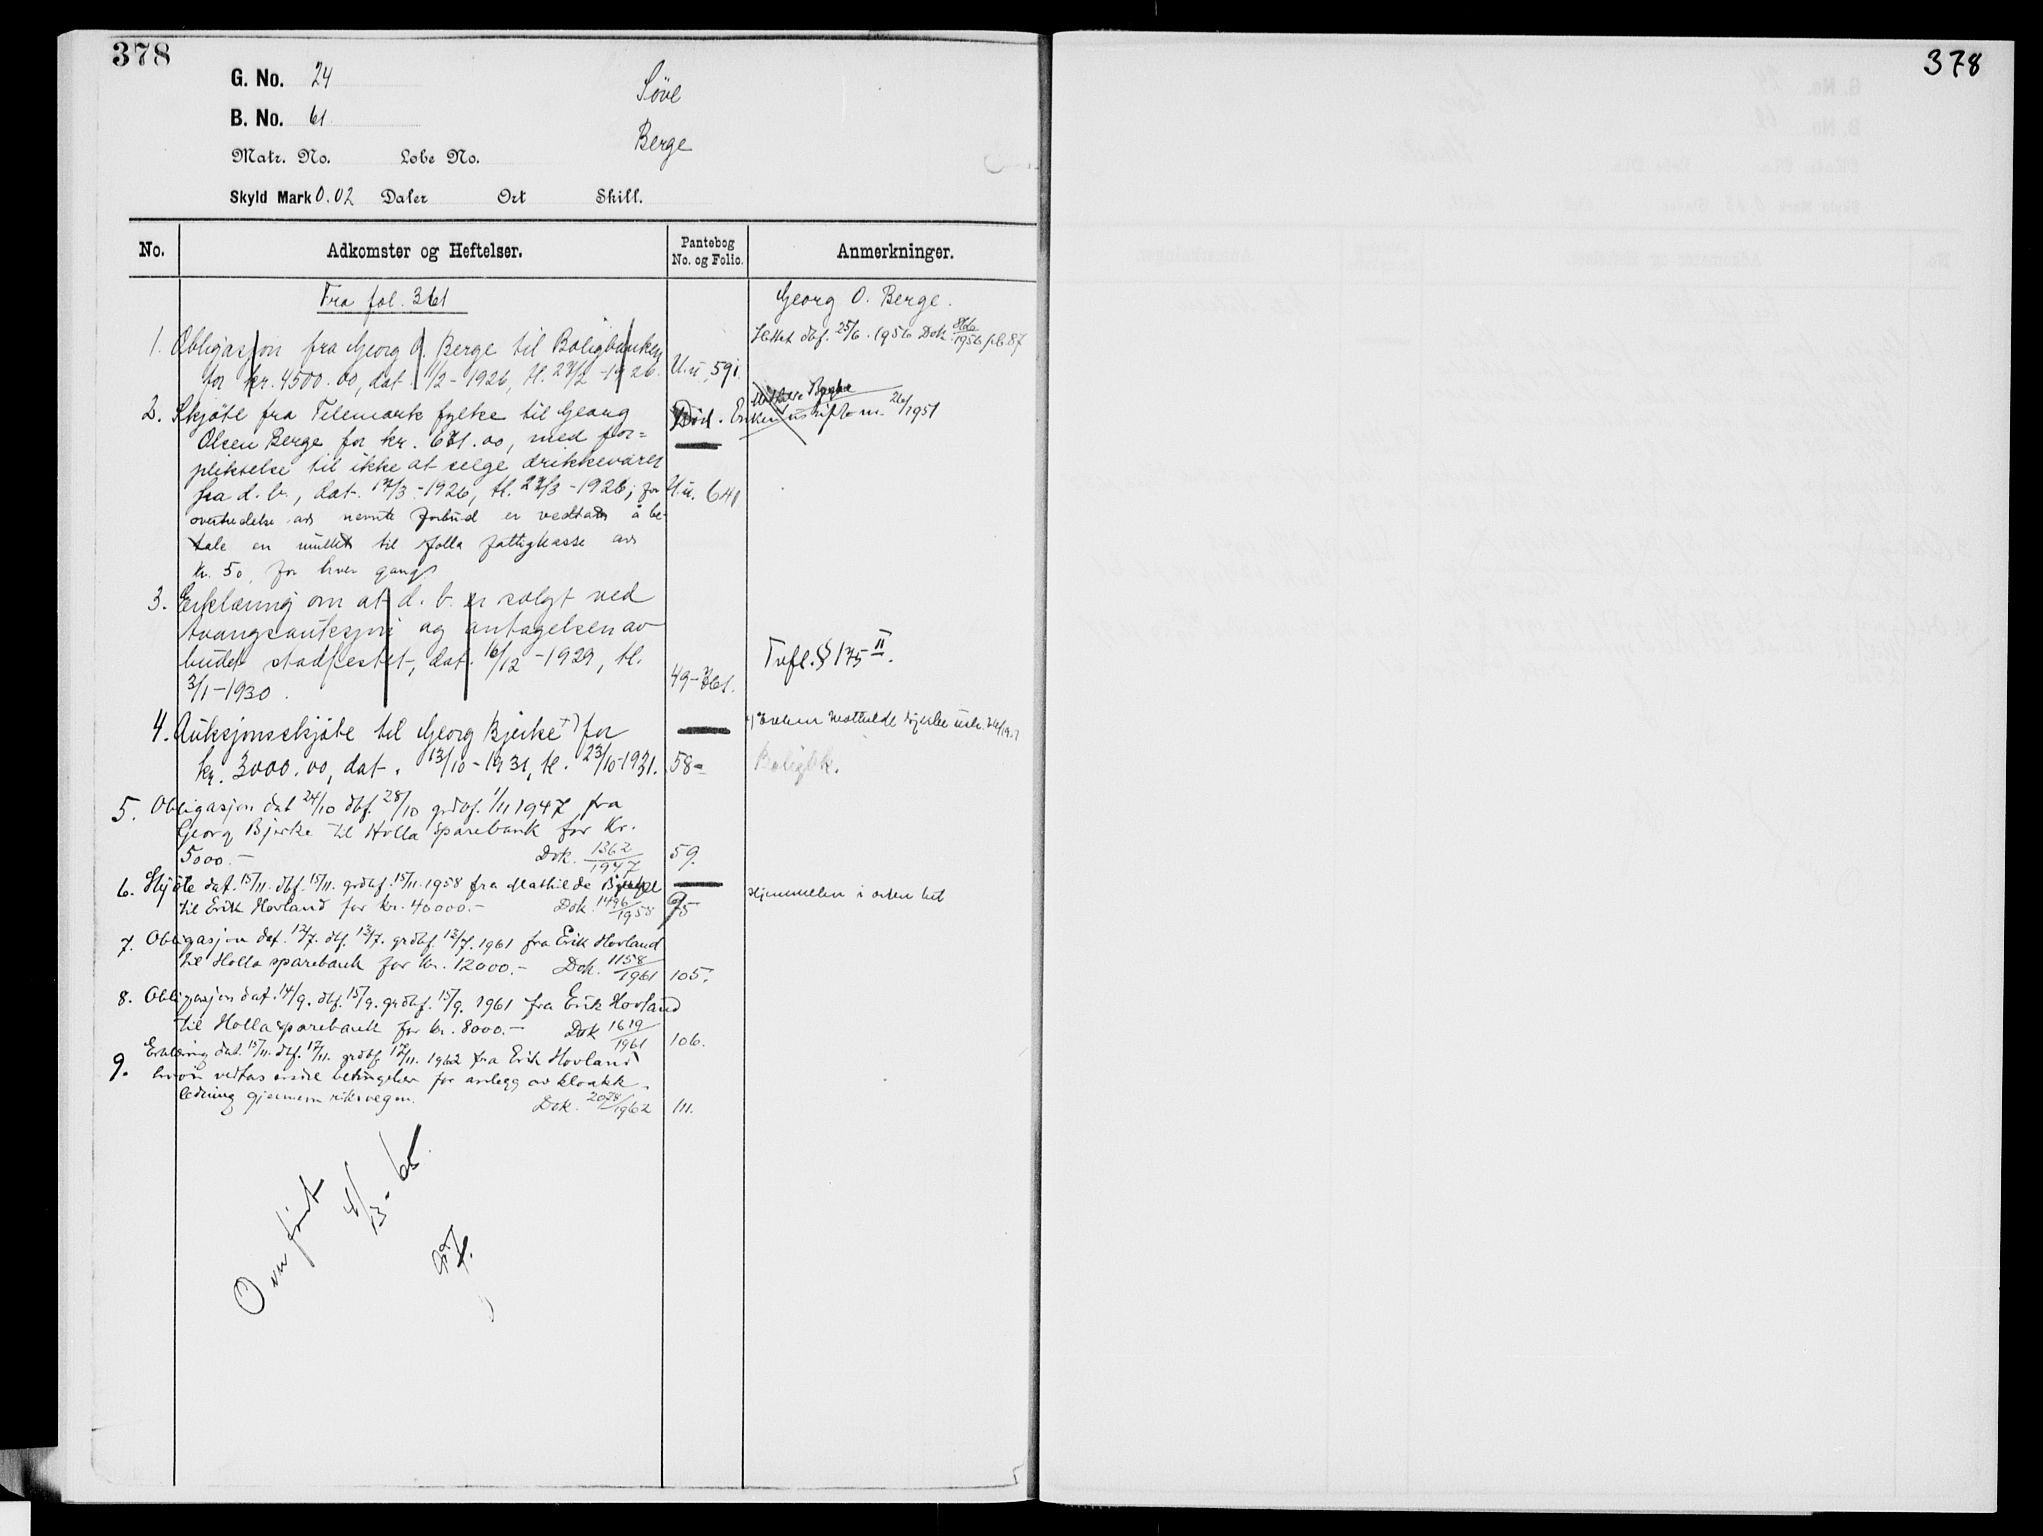 378
378
G. No. 24
Søve
B. No. 61
Berge
Matr. No. Løbe No.
Skyld Mark 0.02 Daler Ort Skill.
No.
Adkomster og Heftelser.
Pantebog No. og Folio.
Anmerkninger.
Fra fol. 361
Georg O. Berge.
1. Obligasjon fra Georg O. Berge til Boligbanken
for kr. 4500.00, dat. 11/2-1926, tl. 27/2-1926. U.u. 591.
Slettet dbf. 25/6.1956 Dok 1956 pb. 87
2. Skjøte fra Telemark fylke til Georg
Død. Enken 1951
Olsen Berge for kr. 631.00, med for=
pliktelse til ikke at selge drikkevarer
fra d. b., dat. 17/3-1926, tl. 27/3-1926; for U.u. 641
overtredelse av nevnte forbud er vedtatt å be-
tale en mulkt til Holla fattigkasse av
kr. 50, for hver gang.
3. Erklæring om at d. b. er solgt ved
tvangsauksjon og antagelsen av
budet stadfestet, dat. 16/12-1929, tl.
3/1-1930. 49-
Tvfl. § 175 II.
4. Auksjonsskjøte til Georg Bjerke +) for
+) Enken Mathilde Bjerke
kr. 3000.00, dat. 13/10-1931, tl. 23/10-1931. 58=
Boligbk.
5. Obligasjon dat 24/10 dbf. 28/10 grdbf. 1/11 1947 fra
Georg Bjerke til Holla Sparebank for kr.
5000.- Dok. 1362/1947 59.
6. Skjøte dat. 15/11. dbf. 15/11. grdbf. 15/11.1958 fra Mathilde Bjerke
til Erik Hovland for kr. 40000.- Dok. 1496/1958 95
Hjemmelen i orden
7. Obligasjon dat. 12/7. dbf. 13/7. grdbf. 13/7.1961 fra Erik Hovland
til Holla sparebank for kr. 12000.- Dok. 1158/1961 105.
8. Obligasjon dat. 14/9. dbf. 15/9. grdbf. 15/9. 1961 fra Erik Hovland
til Holla sparebank for kr. 8000.- Dok 1619/1961 106.
9. Erklæring dat. 15/11. dbf. 17/11. grdbf. 17/11. 1962 fra Erik Hovland
hvori vedtas endel betingelser for anlegg av kloakk-
ledning gjennem riksvegen. Dok. 2078/1962 111.
Overført